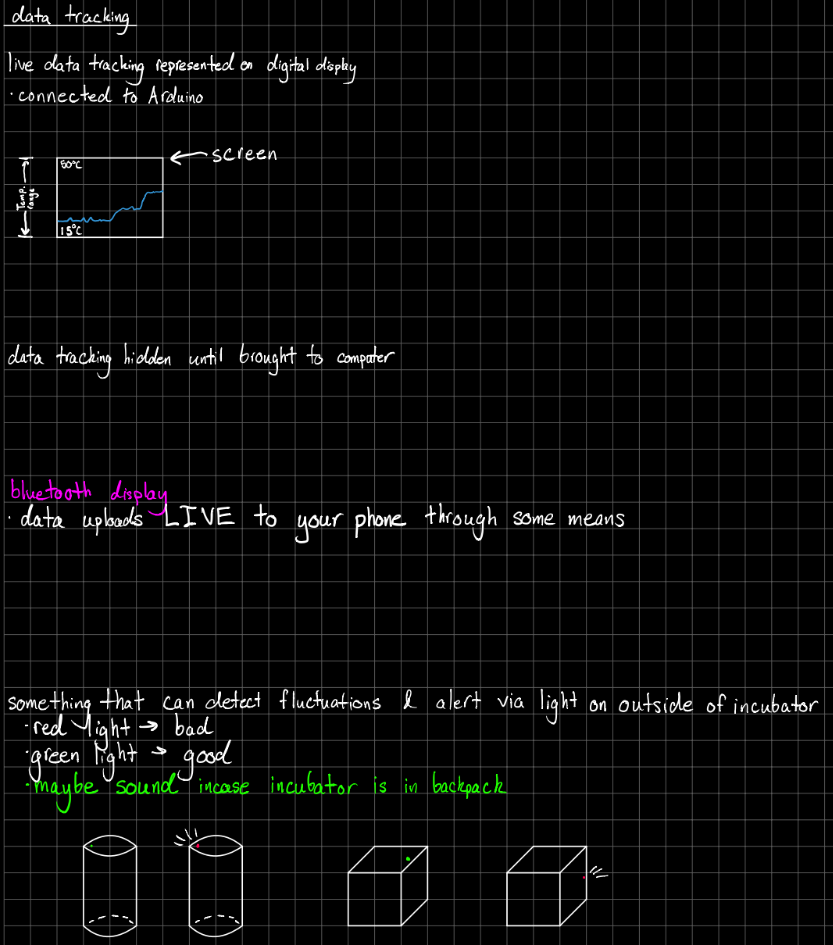 data tracking
live data tracking represented on digital display
· connected to Arduino
screen
50°C
Temp. range
15°C
data tracking hidden until brought to computer
bluetooth display
· data uploads LIVE to your phone through some means
something that can detect fluctuations & alert via light on outside of incubator
· red light → bad
· green light → good
· maybe sound incase incubator is in backpack